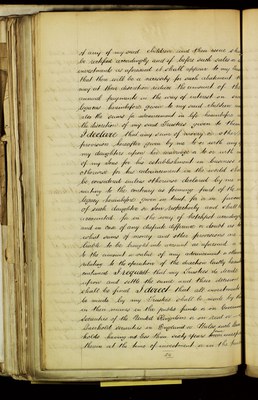 of any of my said children and then some s
be ratified accordingly and if before such sales or
investments as aforesaid it shall appear to my
that there will be a necessity for such abatement
may at their discretion reduce the amount of the
annual payments in the way of interest on
legacies hereinbefore given to my said children
also the sums to
the direction of my said Trustees given to them
I declare that any sum of money or other
provision hereafter given by me to or with any of
my daughters upon her marriage or to or with
of my Sons for his establishment in business
otherwise for his advancement in the world shall
be considered unless otherwise declared by me in
writing to the contrary as forming part of the
legacy hereinbefore given in trust for or in favor
of such daughter or Son respectively and shall
accounted for in the way of hotchpot accordingly
and in case of any dispute difference or doubt as to
what sums of money and other provisions are
liable to be brought into account as aforesaid
to the amount or value of any advancement
relating to the operation of the clause lastly herein
contained I request that my Trustees do settle
adjust and settle the same and their decision
shall be final I direct that all investments
to be made by my Trustees shall be made by them
in their names in the public funds or on Government
Securities of the United Kingdom or on real or
Leasehold securities in England or Wales
holds having not less than sixty years
therein at the time of investment or in the